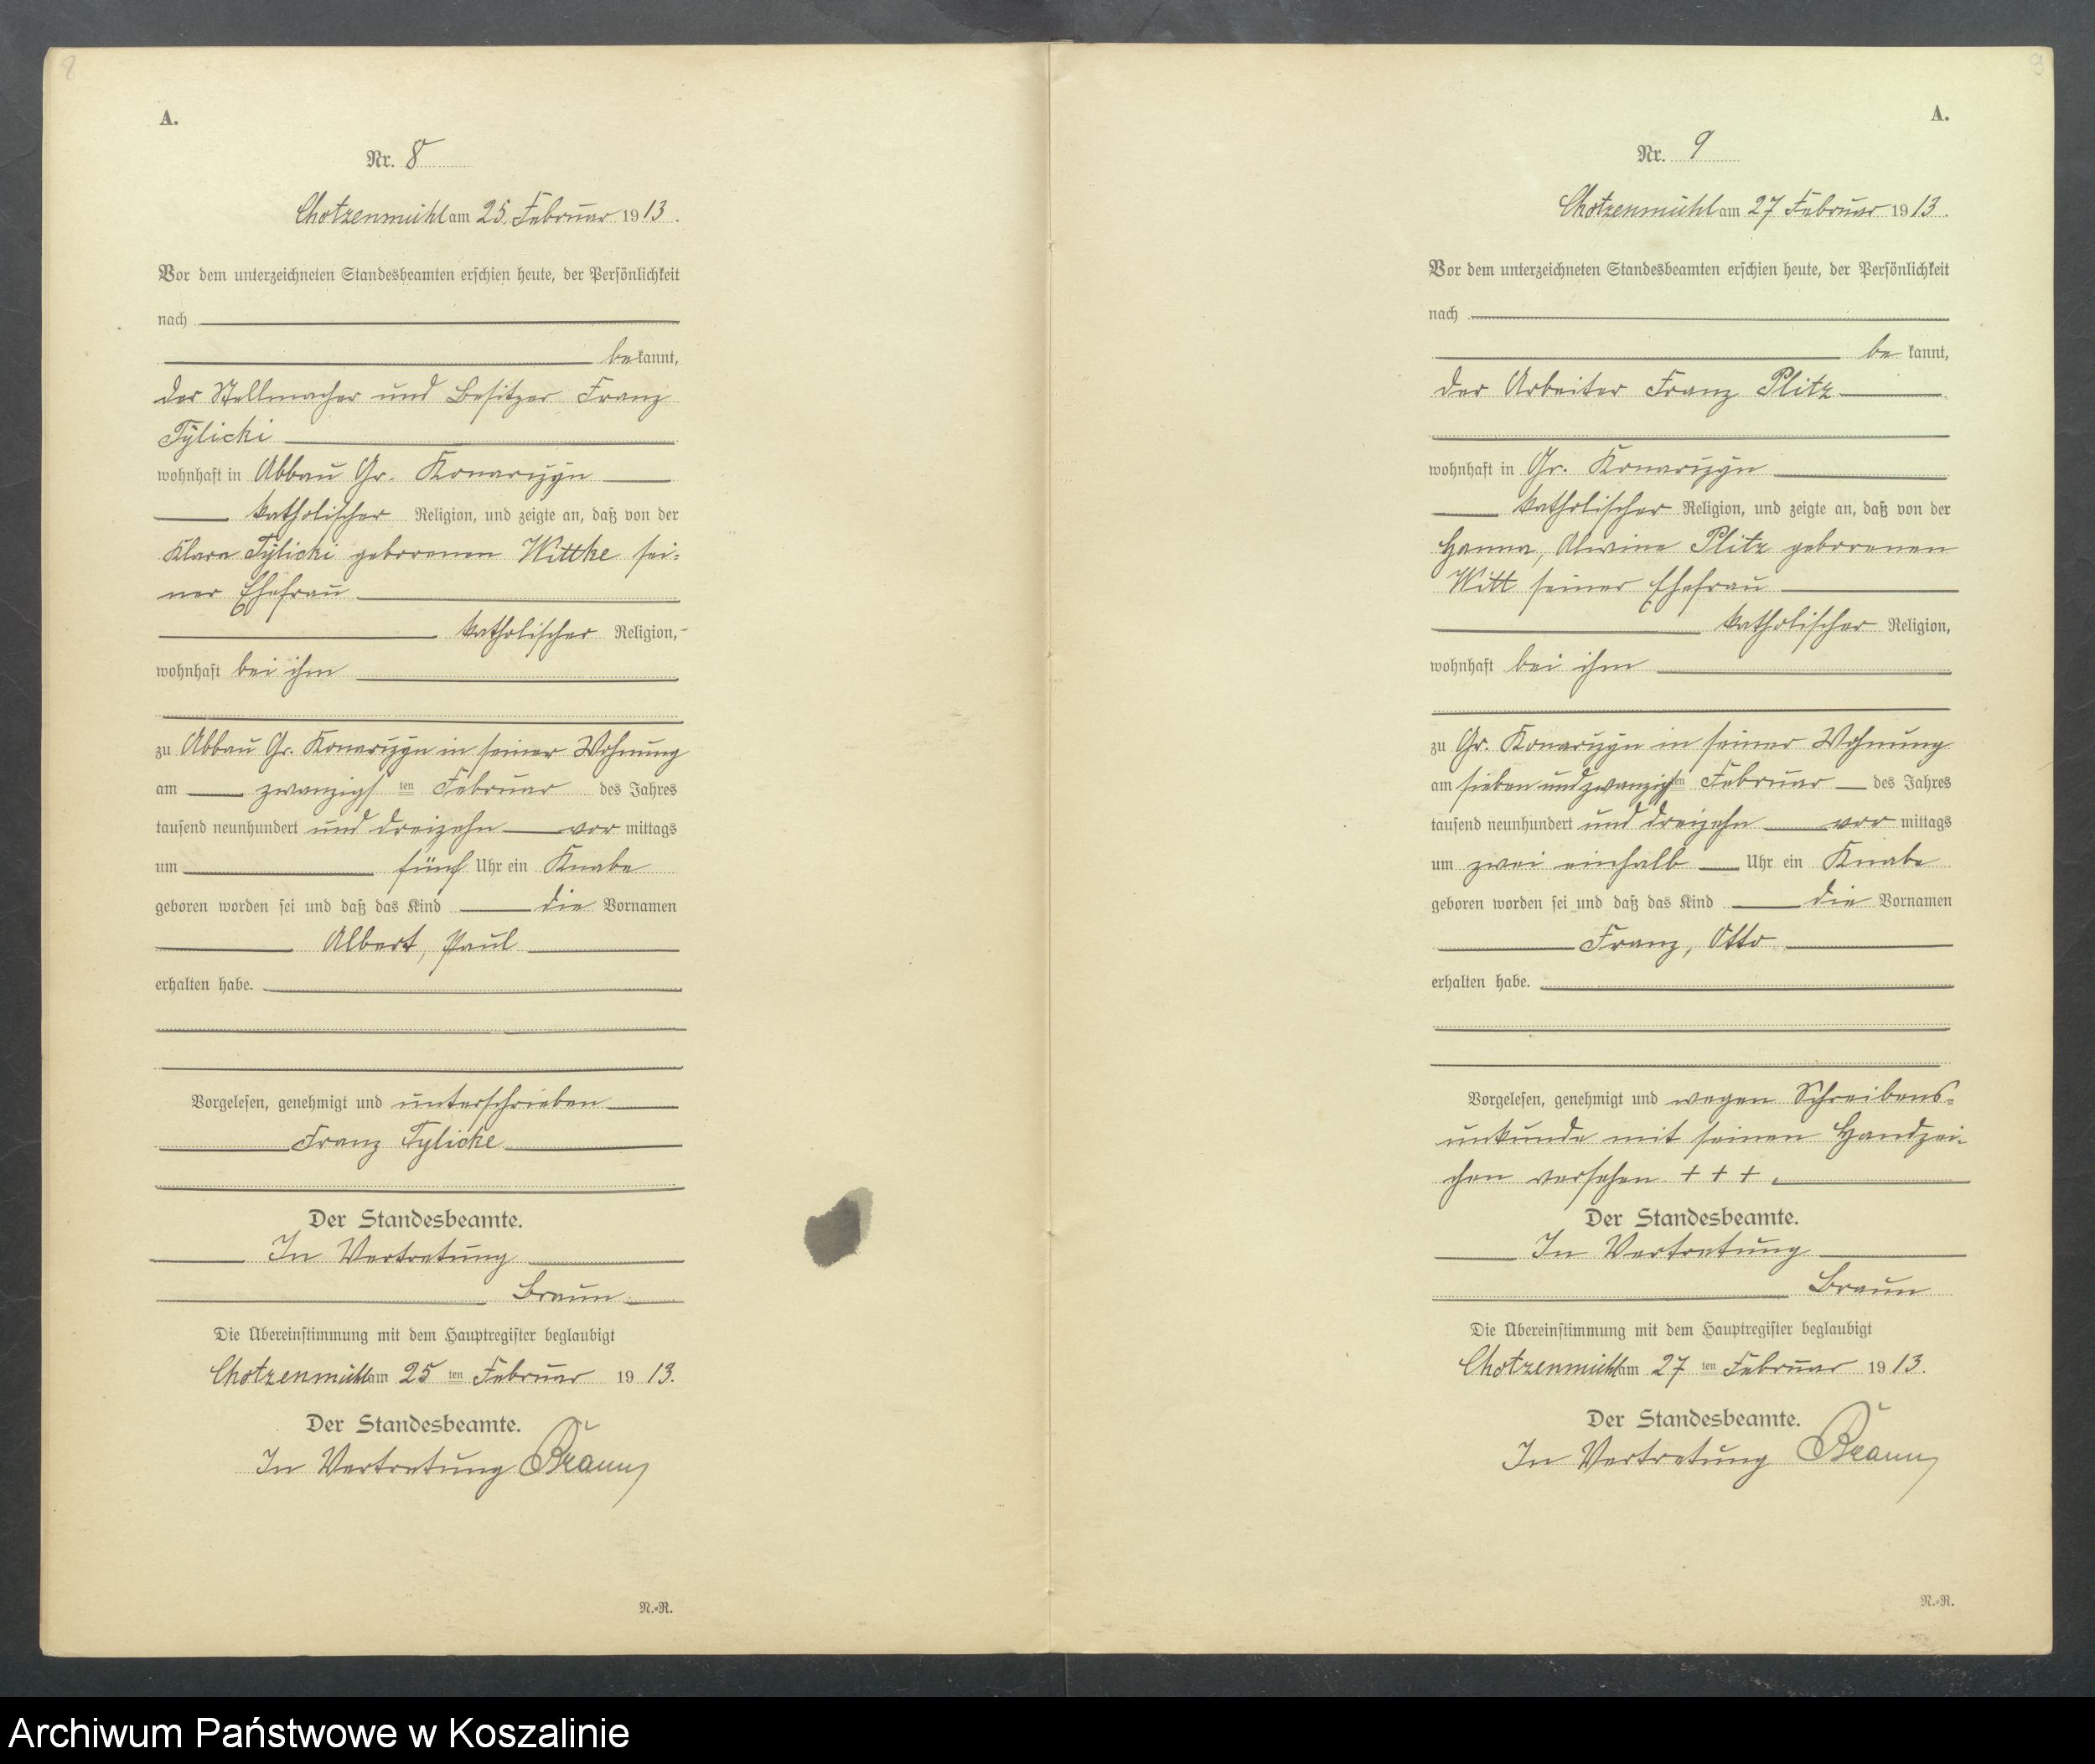 8
A.
Nr. 8
Chotzenmühl am 25. Februar 1913.
Vor dem unterzeichneten Standesbeamten erschien heute, der Persönlichkeit
nach
bekannt,
der Stellmacher und Besitzer Franz
Tylicki
wohnhaft in Abbau Gr. Konarczyn
katholischer Religion, und zeigte an, daß von der
Klara Tylicki geborenen Wittke sei-
ner Ehefrau
katholischer Religion,
wohnhaft bei ihm
zu Abbau Gr. Konarczyn in seiner Wohnung
am zwanzigsten Februar des Jahres
tausend neunhundert und dreizehn vor mittags
um fünf Uhr ein Knabe
geboren worden sei und daß das Kind die Vornamen
Albert, Paul
erhalten habe.
Vorgelesen, genehmigt und unterschrieben
Franz Tylicke
Der Standesbeamte.
In Vertretung
Braun
Die Übereinstimmung mit dem Hauptregister beglaubigt
Chotzenmühl am 25 ten Februar 1913.
Der Standesbeamte.
In Vertretung Braun
N.-R.
9
A.
Nr. 9
Chotzenmühl am 27 Februar 1913.
Vor dem unterzeichneten Standesbeamten erschien heute, der Persönlichkeit
nach
be kannt,
der Arbeiter Franz Plitz
wohnhaft in Gr. Konarczyn
katholischer Religion, und zeigte an, daß von der
Hanna, Alwine Plitz geborenen
Witt seiner Ehefrau
katholischer Religion,
wohnhaft bei ihm
zu Gr. Konarczyn in seiner Wohnung
am sieben und zwanzigsten Februar des Jahres
tausend neunhundert und dreizehn vor mittags
um zwei einhalb Uhr ein Knabe
geboren worden sei und daß das Kind die Vornamen
Franz, Otto
erhalten habe.
Vorgelesen, genehmigt und wegen Schreibens-
unkunde mit seinen Handzei-
chen versehen + + +.
Der Standesbeamte.
In Vertretung
Braun
Die Übereinstimmung mit dem Hauptregister beglaubigt
Chotzenmühl am 27 ten Februar 1913.
Der Standesbeamte.
In Vertretung Braun
N.-R.
Archiwum Państwowe w Koszalinie